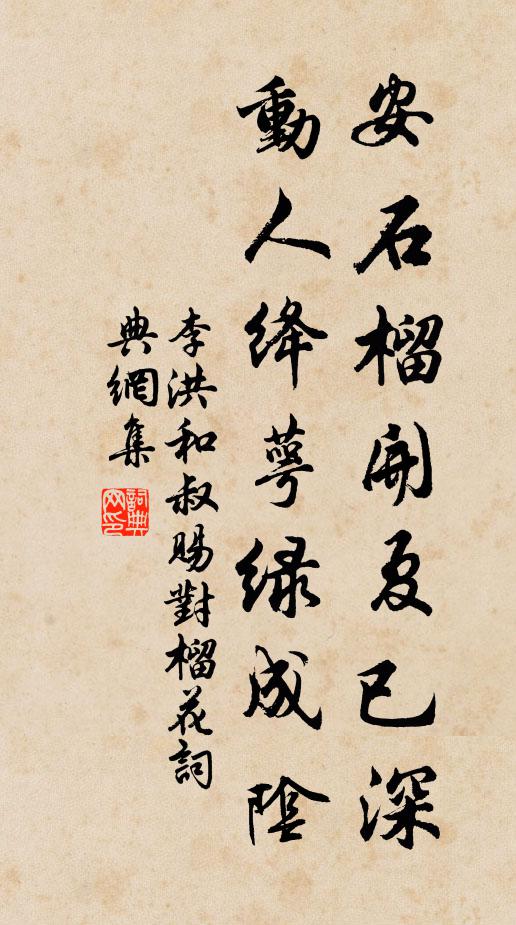 安石榴開夏已深
動人絳萼綠成陰
李洪和叔賜對榴花詞
典網集
詞典網印